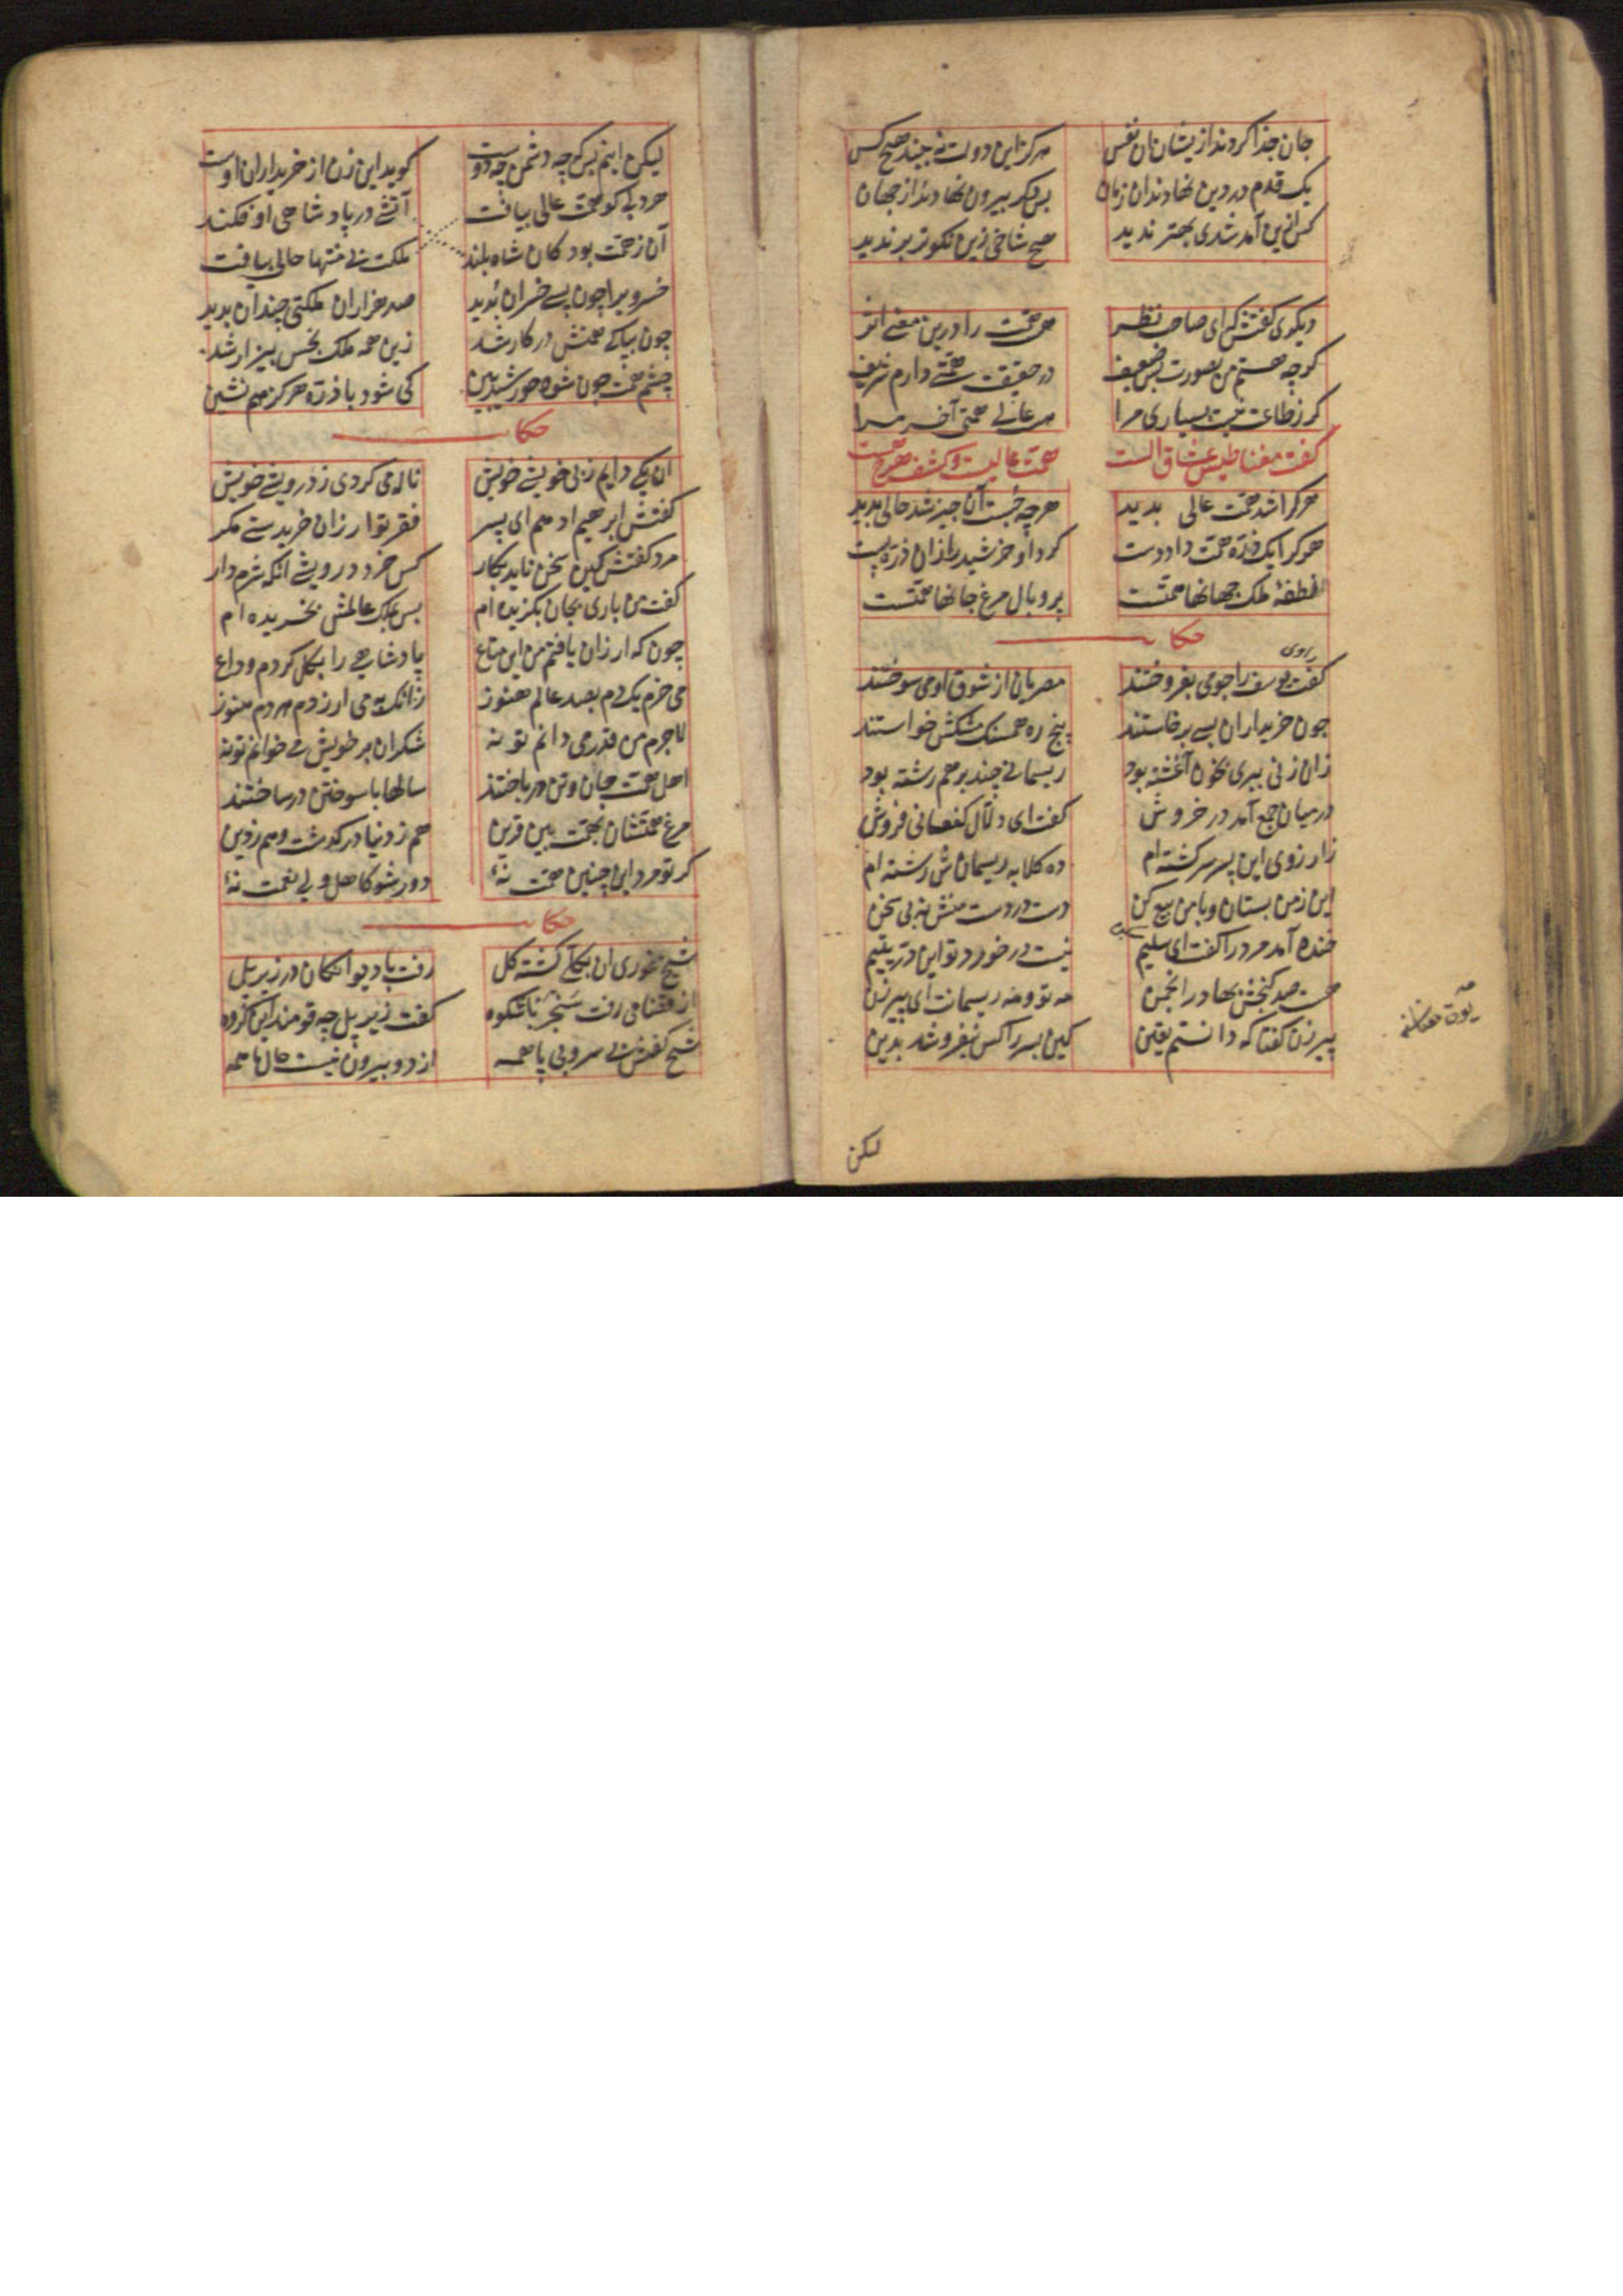 جان جدا کردند ازیشان آن نفس هرکز این دولت نه بیند هیچ کس
یک قدم در دین نهادند آن زمان پس دکر بیرون نهادند از جهان
کس ازین آمد شدی بهتر ندید هیچ شاخی زین نکوتر بر ندید
دیکری کفتش که ای صاحب نظر هست همت را درین معنی اثر
کرچه هستم من بصورت بس ضعیف در حقیقت همتی دارم شریف
کر ز طاعت نیست بسیاری مرا هست عالی همتی آخر مرا
کفت مغناطیس عشاق الست همت عالیست و کشف هرچه هست
هرکرا شد همت عالی بدید هرچه جست آن چیز شد حالی بدید
هرکرا یک ذرّه همت داد دست کرد او خرشید را زان ذرّه پست
نطفهٔ ملک جهانها همتست پر و بال مرغ جانها همتست
حکایت
راوی
کفت یوسف را چومی بفروختند مصریان از شوق او می سوختند
چون خریداران بسی برخاستند پنج ره همسنک مشکش خواستند
زان زنی پیری بخون آغشته بود ریسمانی چند برهم رشته بود
درمیان جمع آمد در خروش کفت ای دلّال کنعانی فروش
ز آرزوی این پسر سرکشته ام ده کلابه ریسمانش رشته ام
این ز من بستان و با من بیع کن دست در دست منش نه بی سخن
خنده آمد مرد را کفت ای سلیم نیست در خورد تو این درّ یتیم
هست صد کنجش بها در انجمن مه تو و مه ریسمانت ای پیرزن
پیرزن کفتا که دانستم یقین کین پسر را کس نبفروشد بدین
لیکن
لیکن اینم بس که چه دشمن چه دوست کوید این زن از خریداران اوست
هر دلی کو همت عالی نیافت ملکت بی منتها حالی نیافت
آن ز همت بود کان شاه بلند آتشی در پادشاهی او فکند
خسروی را چون بسی خسران بدید صد هزاران ملکتی چندان بدید
چون بپاکی همتش در کار شد زین همه ملک نجس بیزار شد
چشم همت چون شود خورشید بین کی شود با ذرّه هرکز هم نشین
حکایت
آن یکی دایم ز بی خویشی خویش ناله می کردی ز درویشی خویش
کفتش ابرهیم ادهم ای پسر فقر تو ارزان خریدستی مکر
مرد کفتش کین سخن ناید بکار کس خرد درویشی آنکه شرم دار
کفت من باری بجان بکزیده ام پس بملک عالمش بخریده ام
چون که ارزان یافتم من این متاع پادشاهی را بکل کردم وداع
می خرم یک دم بصد عالم هنوز زانک به می ارزدم هر دم هنوز
لاجرم من قدر می دانم تو نه شکر آن بر خویش می خوانم تو نه
اهل همت جان و تن در باختند سالها با سوختن در ساختند
مرغ همتشان بهمت بین قرین هم ز دنیا در کذشت و هم ز دین
کر تو مرد این چنین همت نهٔ دور شو کاهل ولی نعمت نهٔ
حکایت
شیخ غوری آن بکلی کشته کل رفت با دیوانکان در زیر پل
از قضا می رفت سنجر باشکوه کفت زیر پل چه قومند این کروه
شیخ کفتش بی سر و بی پا همه از دو بیرون نیست حال ما همه